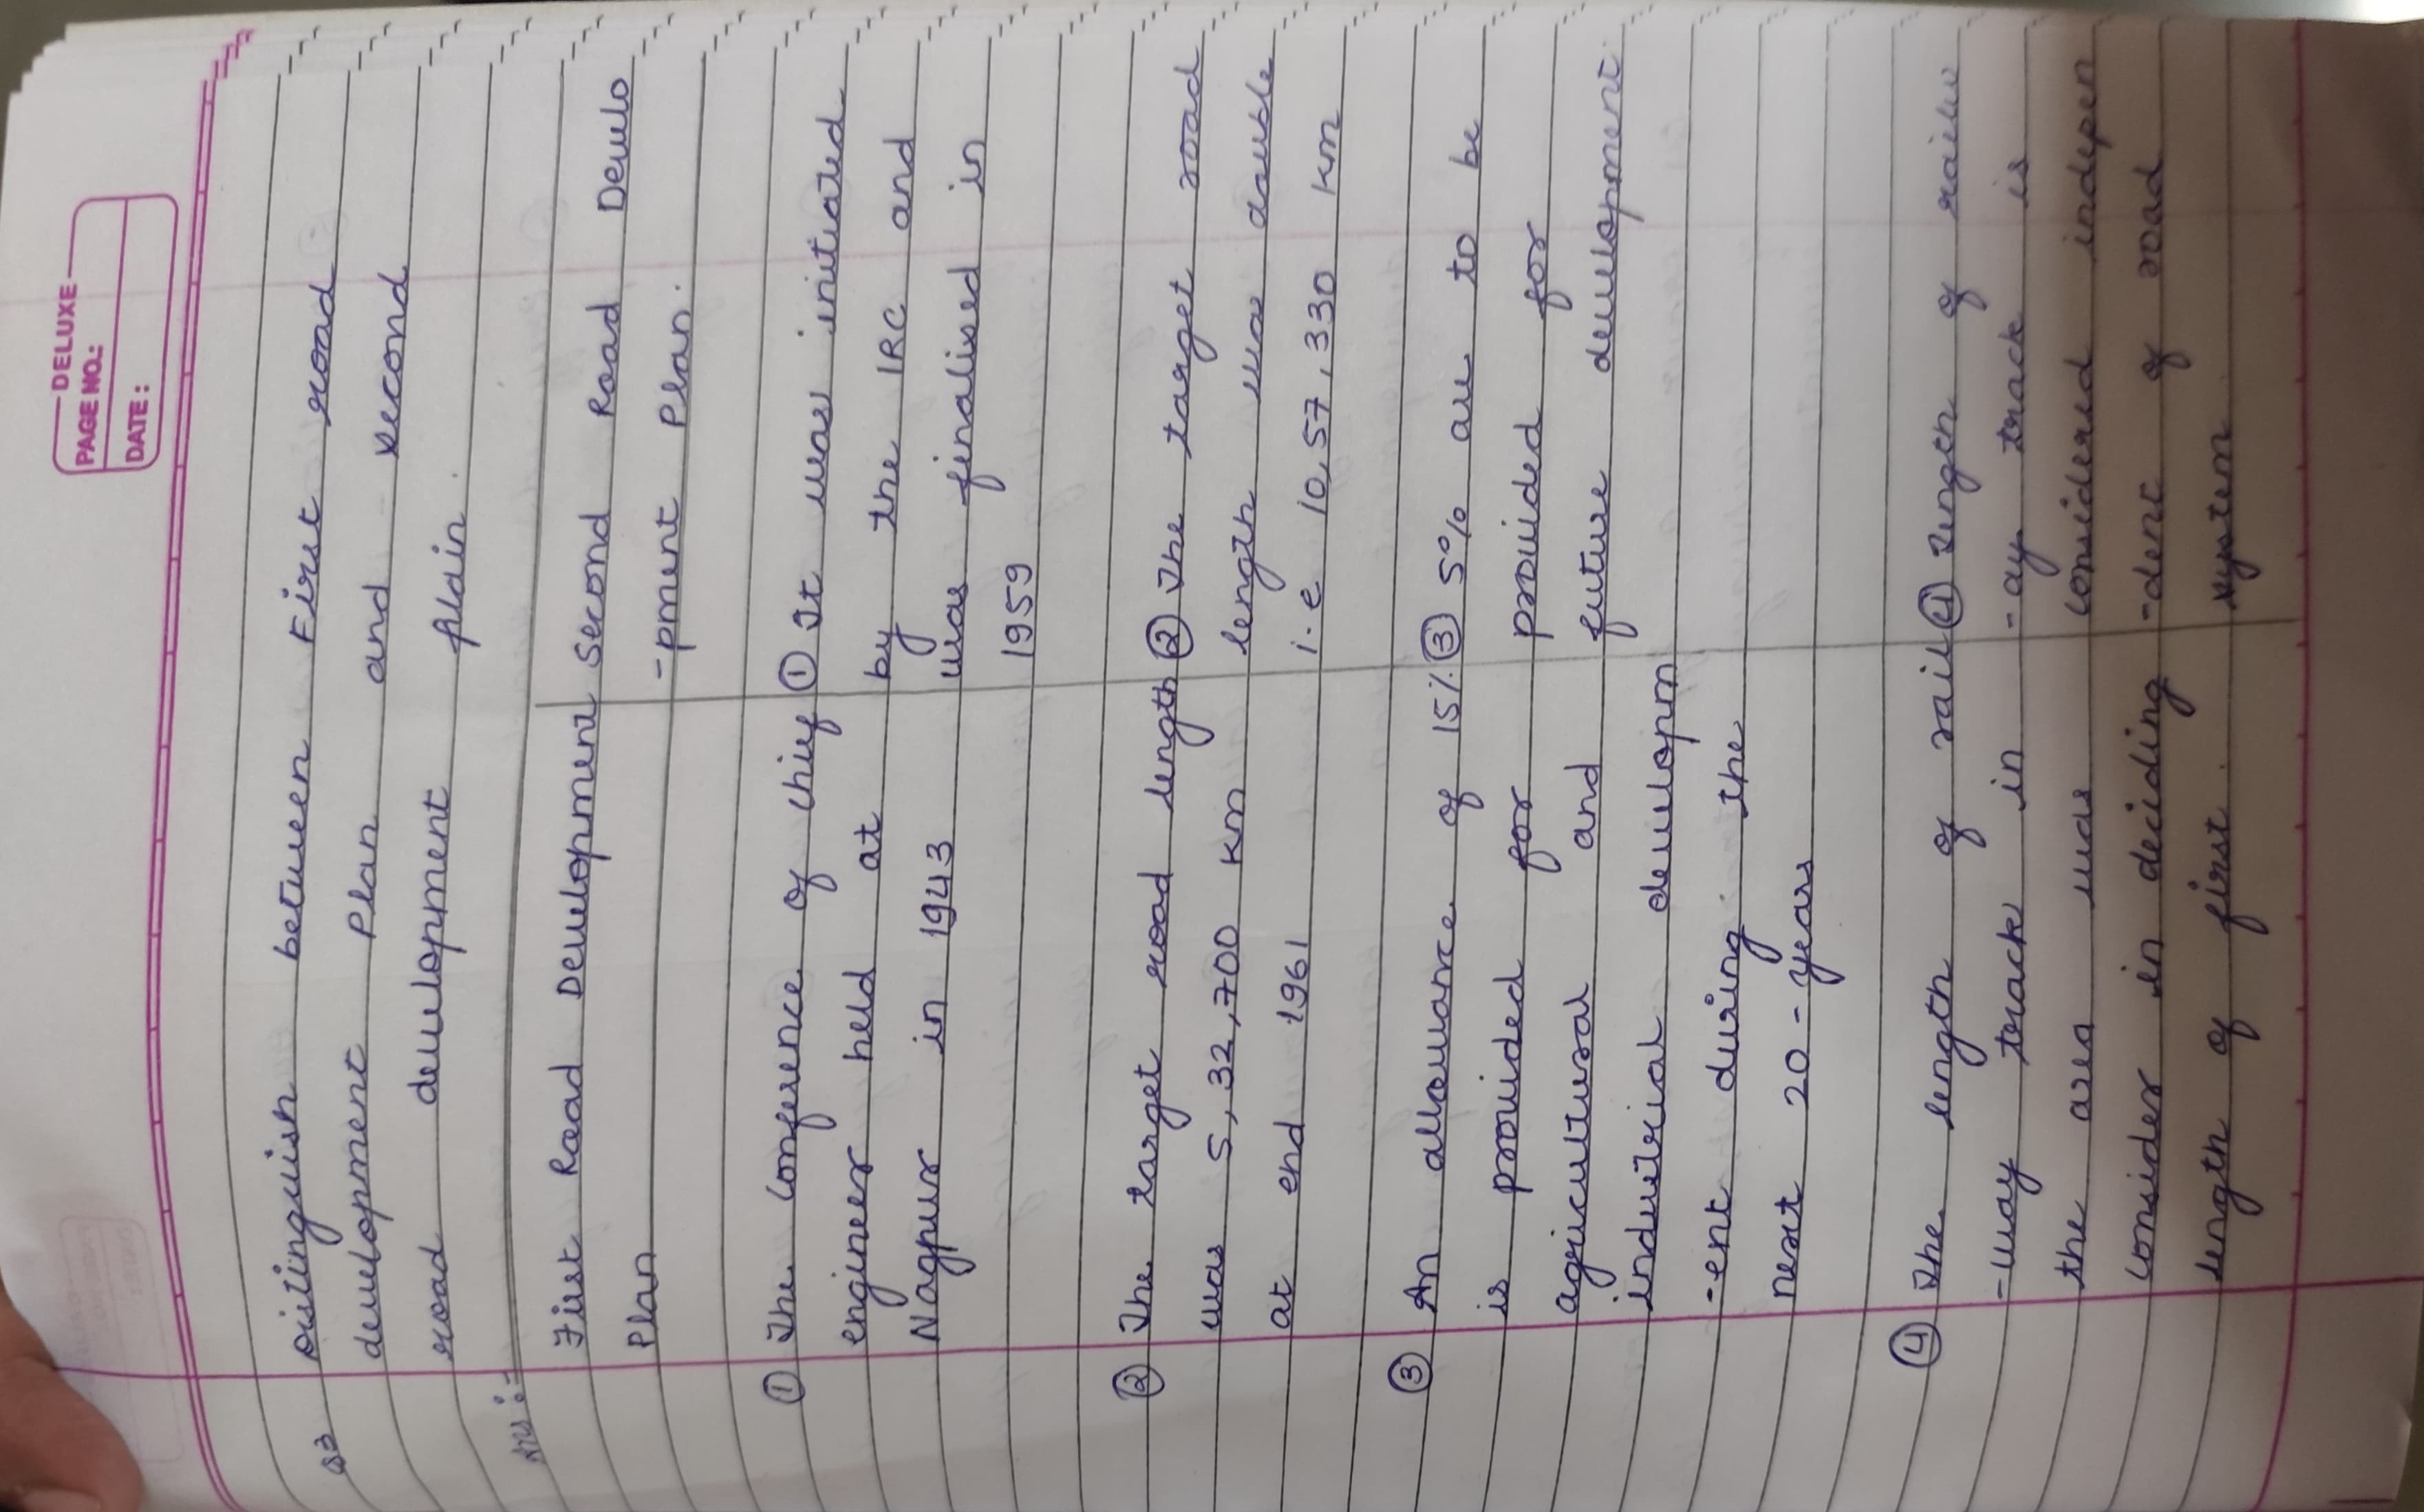 DELUXE
PAGE NO.:
DATE :
Q3 Distinguish between First road
development Plan and second
road development plain.
Ans :-
First Road Development
Plan
Second Road Develo
-pment Plan.
① The conference of chief
engineer held at
Nagpur in 1943
① It was initiated
by the IRC and
was finalised in
1959
② The target road length
was 5,32,700 km
at end 1961
② The target road
length was double
i.e 10,57,330 km
③ An allowance of 15%
is provided for
agricultural and
industrial developm
-ent during the
next 20-years
③ 5% are to be
provided for
future development
④ The length of rail
-way track in
the area was
consider in deciding
length of first.
④ Length of railw
-ay track is
considered indepen
-dent of road
system